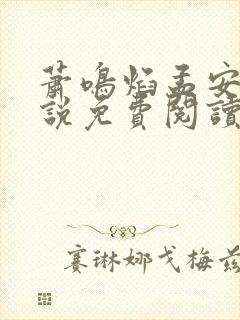 蕭鳴焰孟安
説免費閱讀
賽琳娜戈梅茲